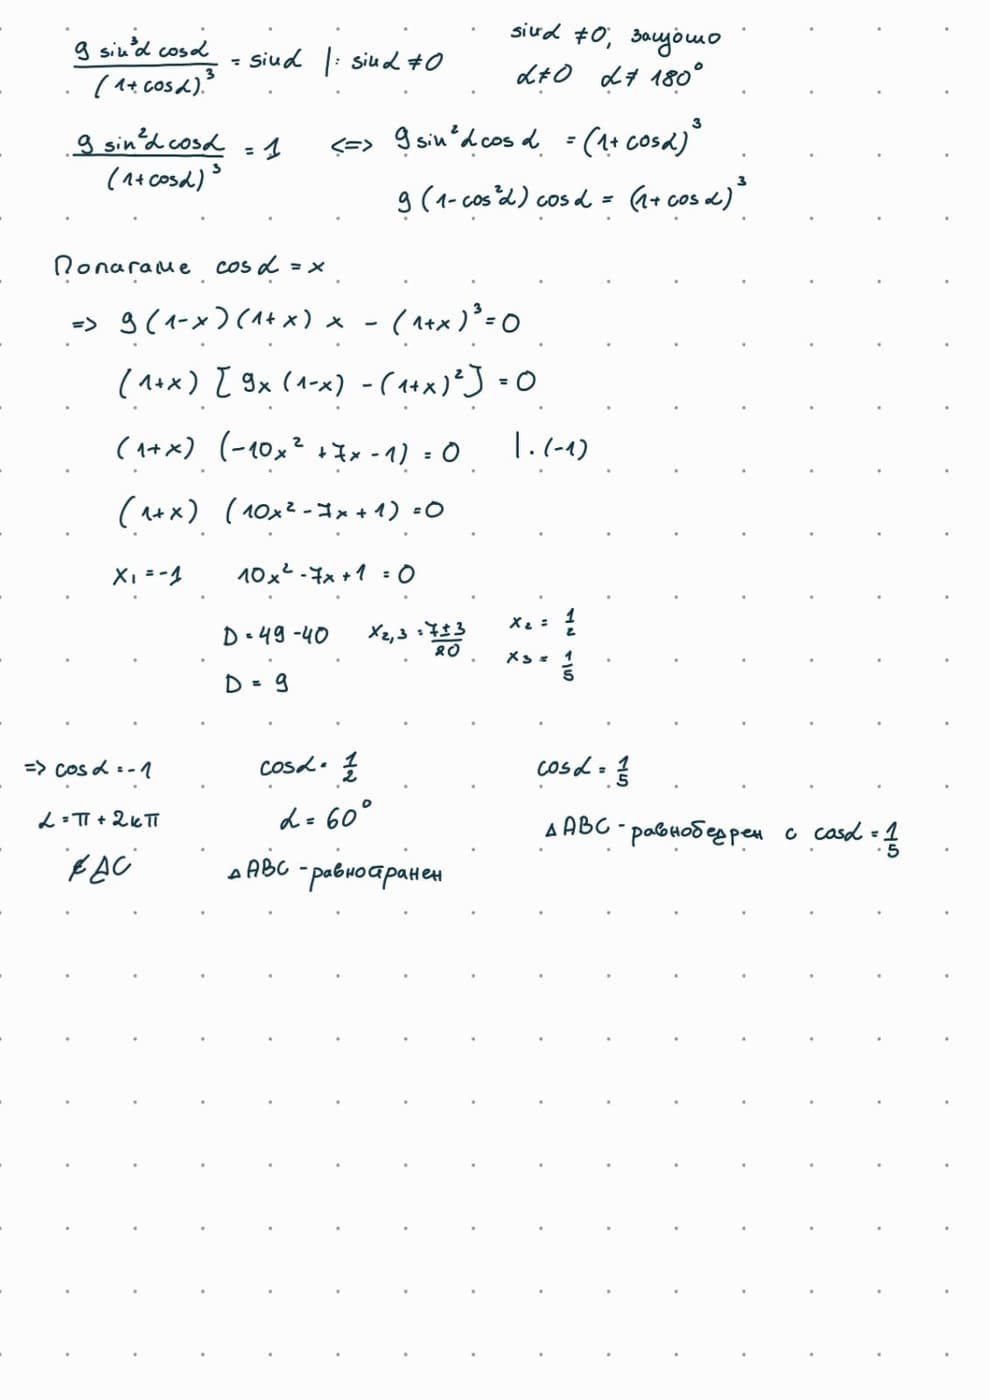 9 sin³α cosα / (1+ cosα)³ = sinα |: sinα ≠0
sinα ≠0, защото
α≠0 α≠ 180°
9 sin²α cosα / (1+cosα)³ = 1 <=> 9 sin²α cos α = (1+ cosα)³
9 (1-cos²α) cos α = (1+ cos α)³
Полагаме cos α = x
=> 9 (1-x) (1+x) x - (1+x)³ = 0
(1+x) [ 9x (1-x) - (1+x)² ] = 0
(1+x) (-10x² +7x -1) = 0 | . (-1)
(1+x) (10x² -7x + 1) = 0
x₁ = -1 10x² -7x +1 = 0
D = 49 -40 x₂,₃ = 7±3 / 20 x₂ = 1/2
x₃ = 1/5
D = 9
=> cos α = -1 cosα = 1/2 cosα = 1/5
α = π + 2kπ α = 60° △ABC - равнобедрен с cosα = 1/5
△ABC - равностранен